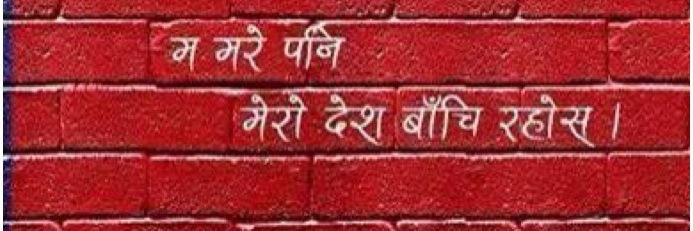 म मरे पनि
मेरो देश बाँचि रहोस् ।